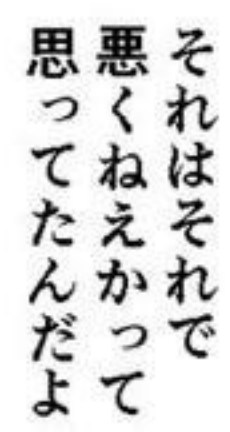 それはそれで
悪くねえかって
思ってたんだよ